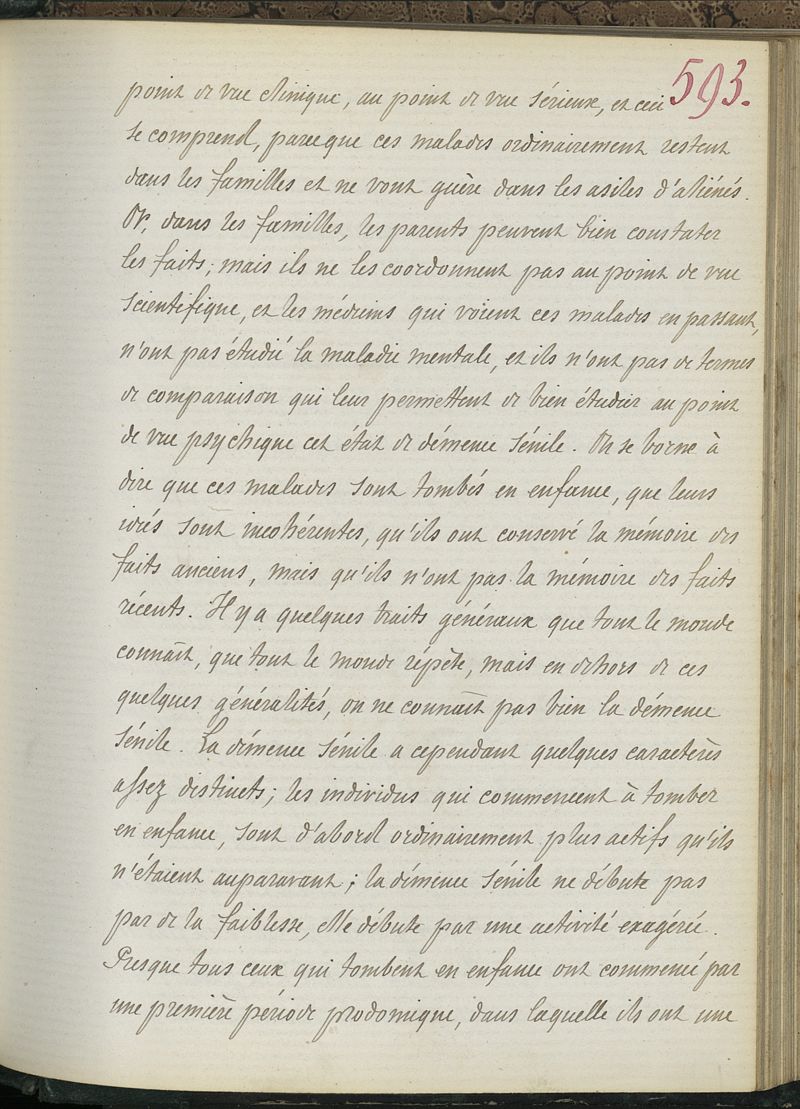 593.
point de vue clinique, au point de vue sérieux, et ceci
se comprend, parce que ces malades ordinairement restent
dans les familles et ne vont guère dans les asiles d'aliénés.
Or, dans les familles, les parents peuvent bien constater
les faits; mais ils ne les coordonnent pas au point de vue
scientifique, et les médecins qui voient ces malades en passant,
n'ont pas étudié la maladie mentale, et ils n'ont pas de termes
de comparaison qui leur permettent de bien étudier au point
de vue psychique cet état de démence sénile. On se borne à
dire que ces malades sont tombés en enfance, que leurs
idées sont incohérentes, qu'ils ont conservé la mémoire des
faits anciens, mais qu'ils n'ont pas la mémoire des faits
récents. Il y a quelques traits généraux que tout le monde
connaît, que tout le monde répète, mais en dehors de ces
quelques généralités, on ne connaît pas bien la démence
sénile. La démence sénile a cependant quelques caractères
assez distincts; les individus qui commencent à tomber
en enfance, sont d'abord ordinairement plus actifs qu'ils
n'étaient auparavant; la démence sénile ne débute pas
par de la faiblesse, elle débute par une activité exagérée.
Presque tous ceux qui tombent en enfance ont commencé par
une première période prodomique, dans laquelle ils ont une